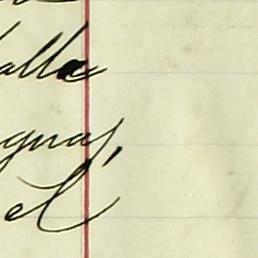 alla
guas,
el